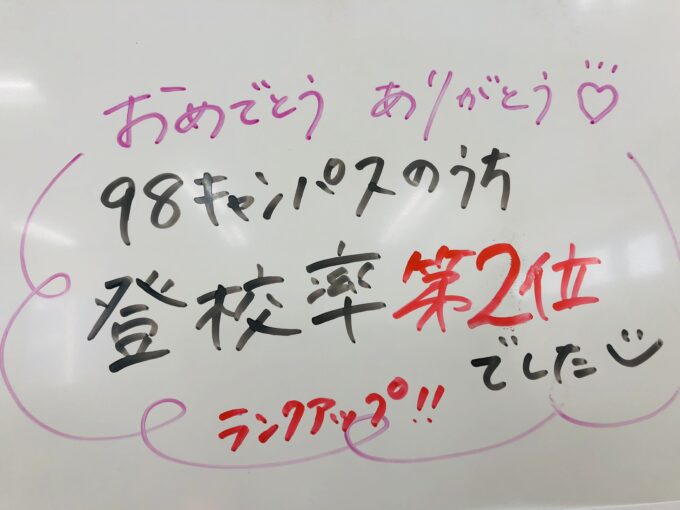 おめでとう ありがとう♡
98キャンパスのうち
登校率第2位
でした
ランクアップ!!